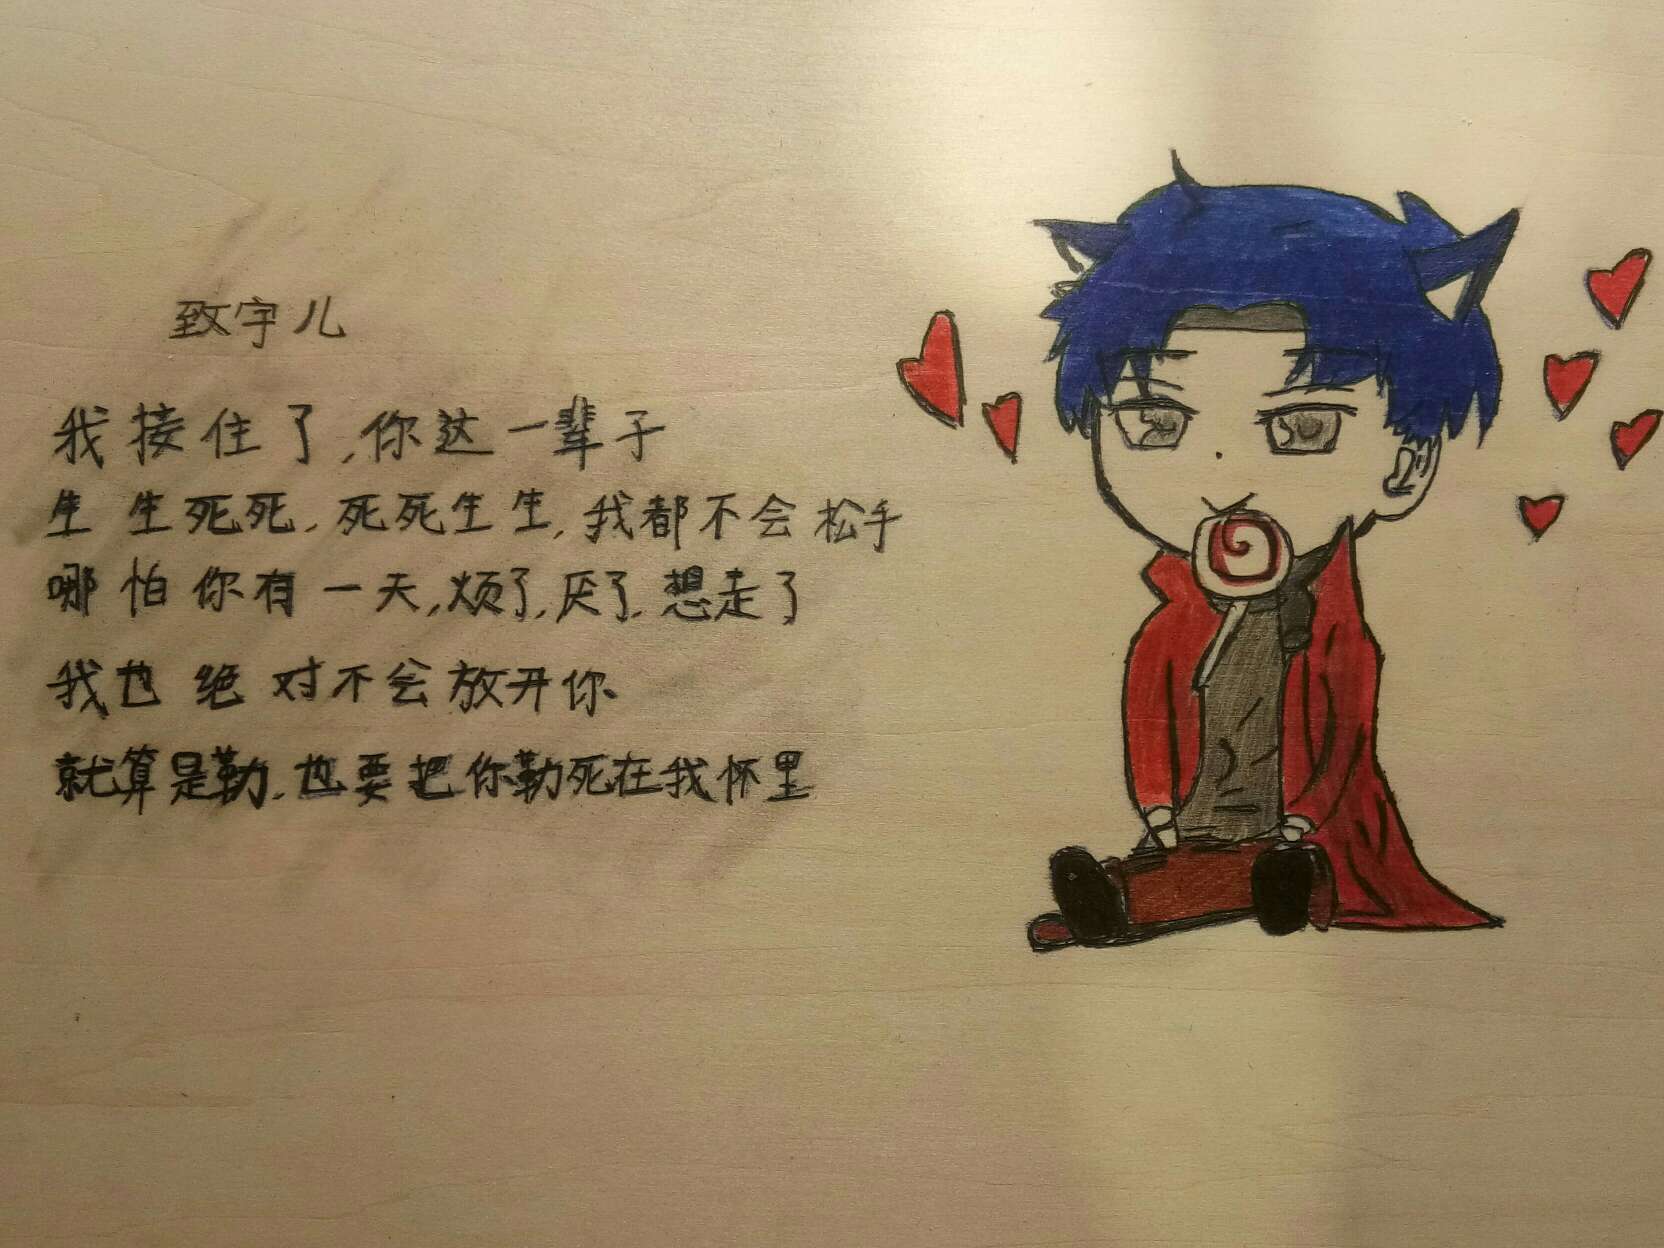 致宇儿
我接住了,你这一辈子
生生死死,死死生生,我都不会松手
哪怕你有一天,烦了,厌了,想走了
我也绝对不会放开你、
就算是勒,也要把你勒死在我怀里